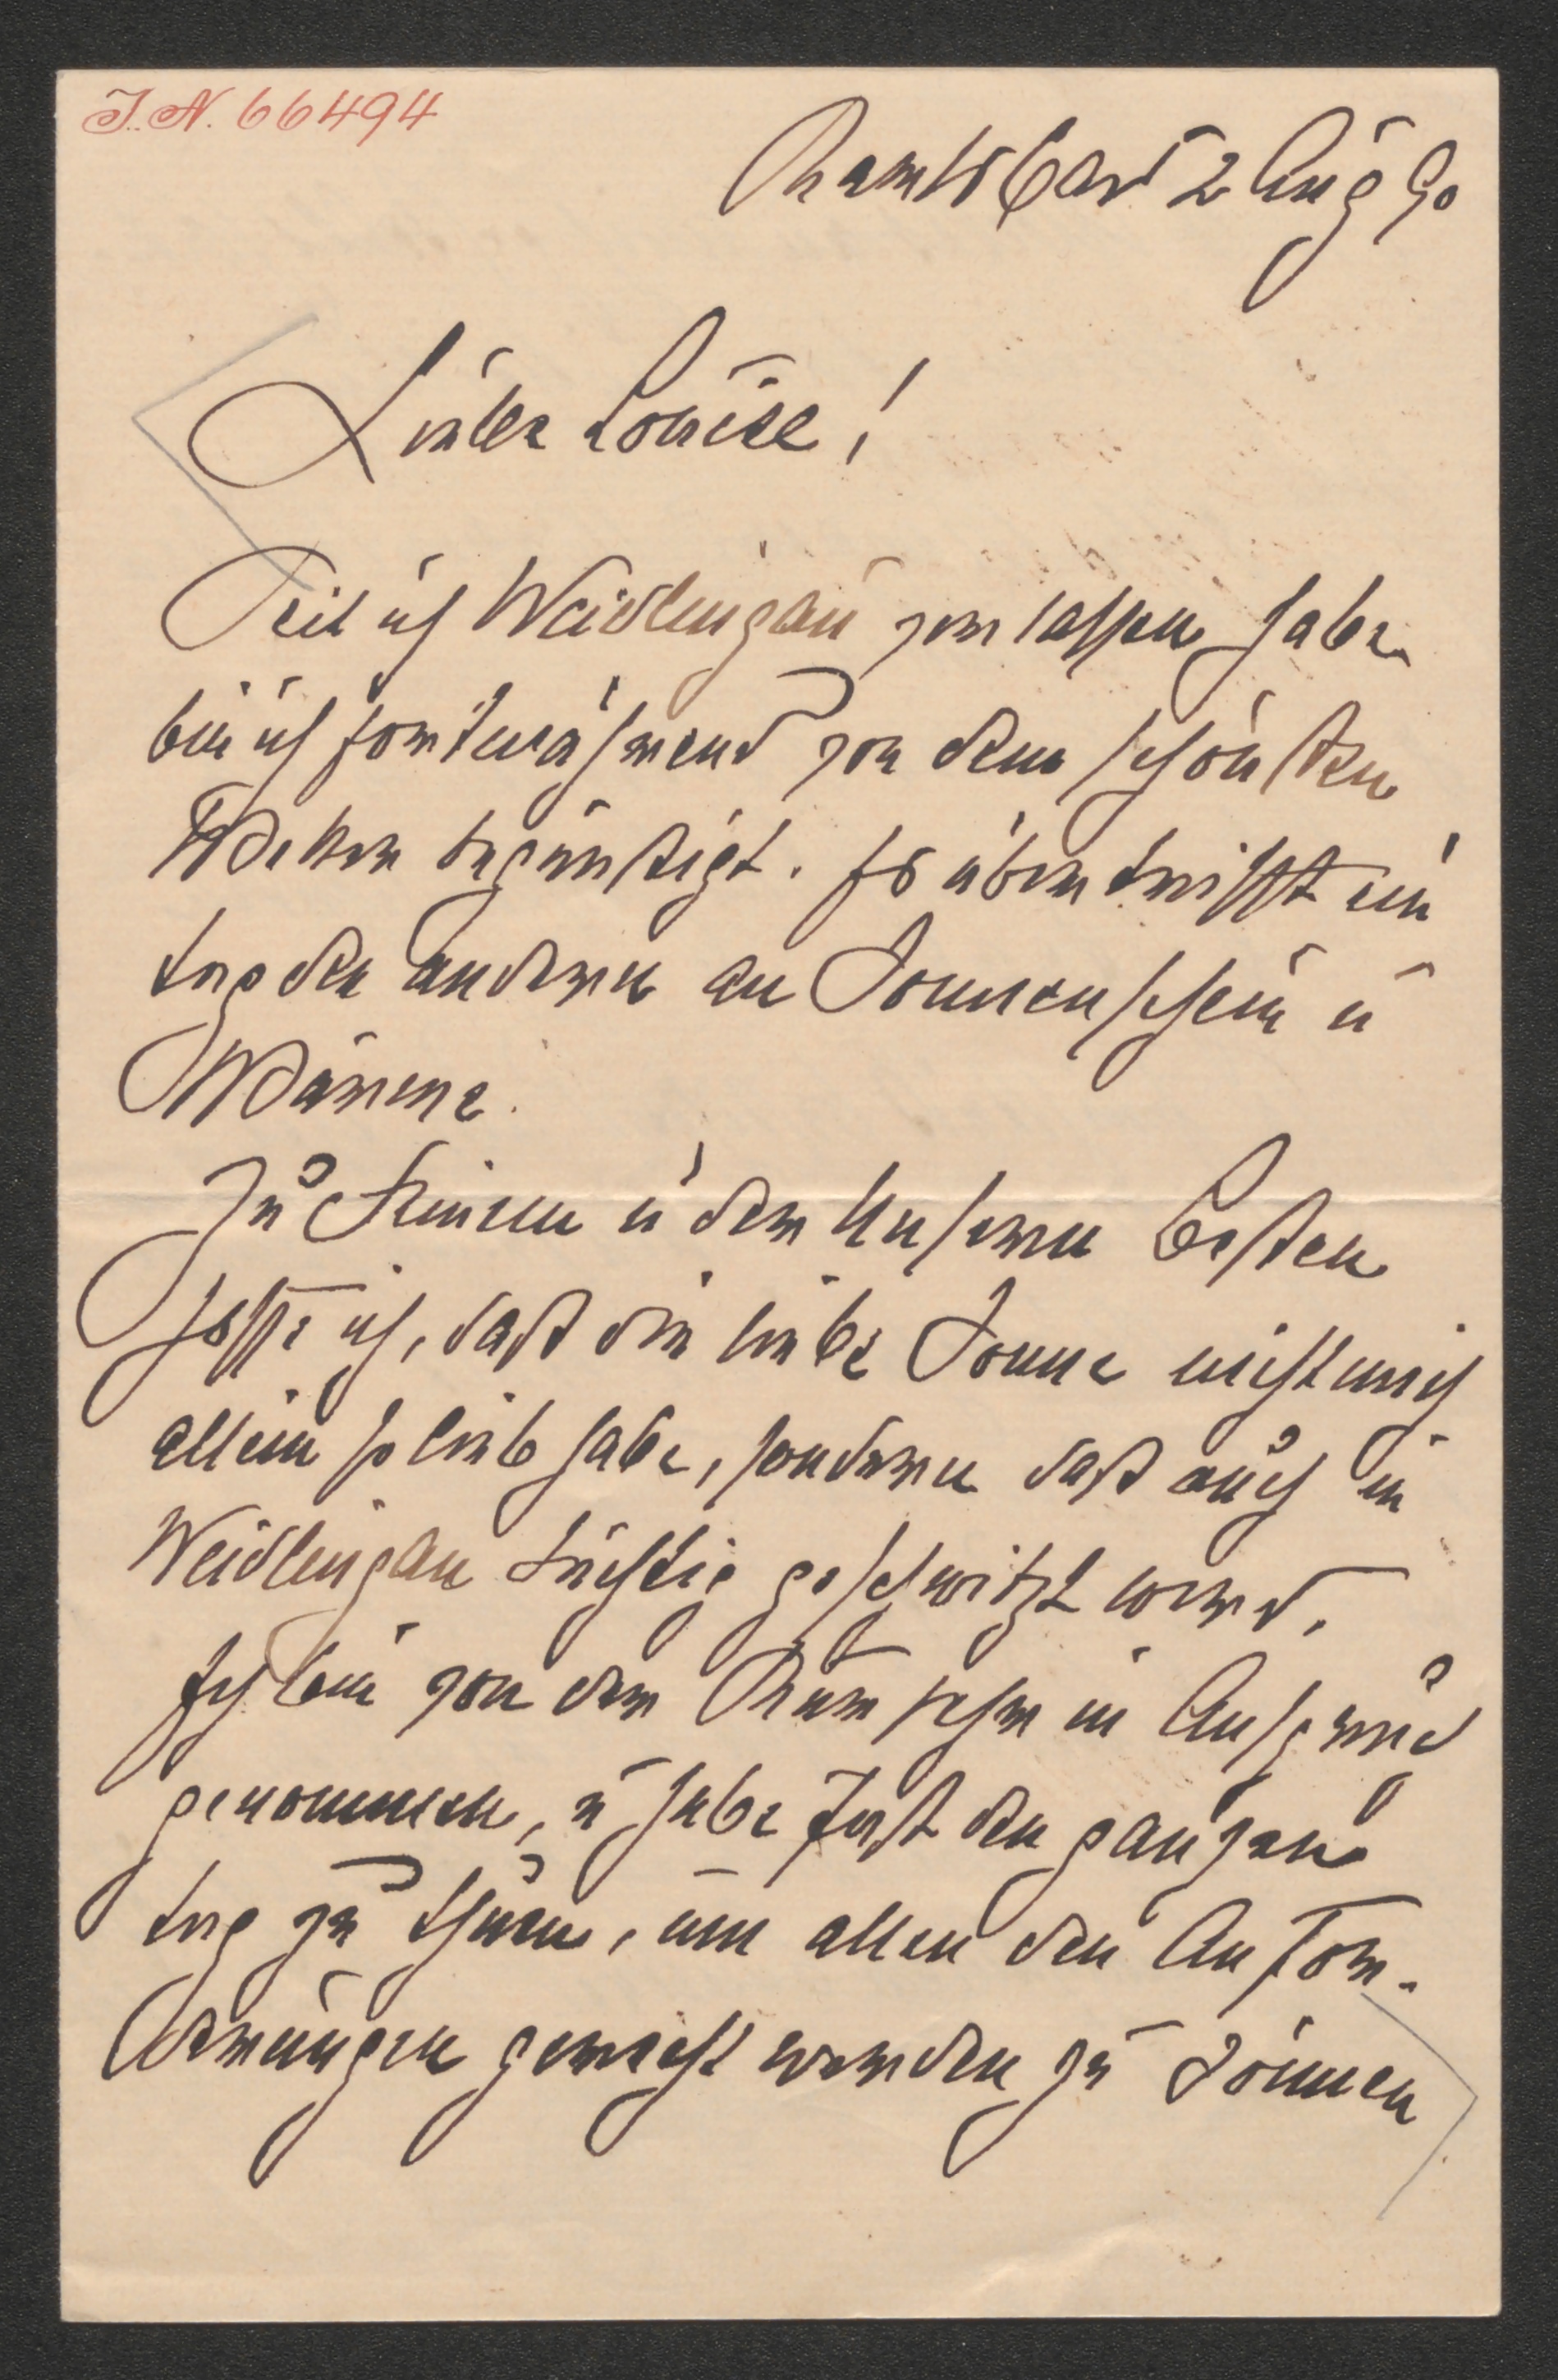 I.N. 66494
2 Aug 90
Liebe Louise!
Seit ich Weidlingau verlassen habe
bin ich fortwährend von dem schönsten
Wetter begünstigt. Es übertrifft ein
Tag den anderen an Sonnenschein u
Wärme.
Zu Deinem u der Unseren Besten
hoffe ich, daß die liebe Sonne nicht mich
allein so lieb habe, sondern daß auch in
Weidlingau tüchtig geschwitzt werd.
Ich bin von der Kur sehr in Anspruch
genommen, u habe fast den ganzen
Tag zu thuen, um allen den Anfor-
derungen gerecht werden zu können